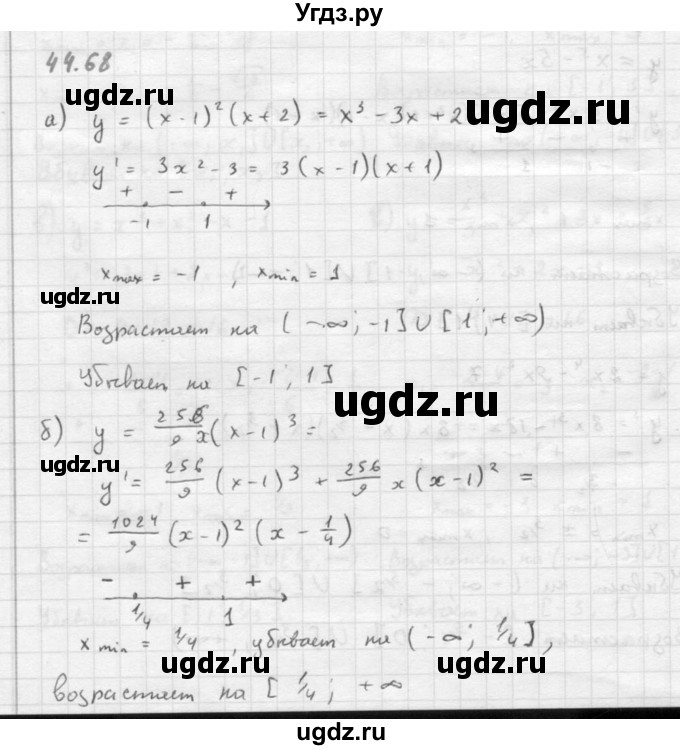 Угдз.ру
44.68
ugdz.ru
ugdz.ru
а) y = (x-1)²(x+2) = x³ - 3x + 2
y' = 3x² - 3 = 3(x-1)(x+1)
ugdz.ru
+ - +
-1 1
x max = -1 , x min = 1
ugdz.ru
Возрастает на (-∞; -1] ∪ [1; +∞)
Убывает на [-1; 1]
ugdz.ru
б) y = 256/9 x(x-1)³ =
ugdz.ru
y' = 256/9 (x-1)³ + 256/9 x (x-1)² =
= 1024/9 (x-1)² (x - 1/4)
- + +
1/4 1
x min = 1/4 , убывает на (-∞; 1/4],
ugdz.ru
ugdz.ru
возрастает на [1/4; +∞
ugdz.ru